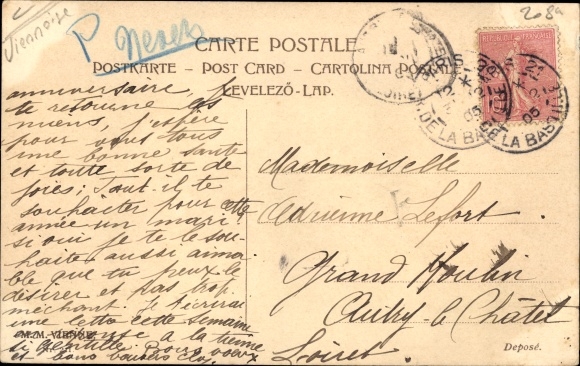 Viennoise
P Nevers
268a
CARTE POSTALE
POSTKARTE - POST CARD - CARTOLINA POSTALE
LEVELEZŐ-LAP.
REPUBLIQUE FRANÇAISE
PARIS
R. DE LA BASTILLE
05
R. DE LA BASTILLE
05
LOIRET
anniversaire, je
te retourne les
miens, j'espère
pour vous tous
une bonne santé
et toute sorte de
joies; Faut-il te
souhaiter pour cette
année un mari?
si oui je te le sou-
haite aussi aima-
ble que tu peux le
désirer et pas trop
méchant. Je t'écrirai
une lettre cette semaine
à la tienne
si gentille. Bons vœux
et bons baisers
Mademoiselle
Adrienne Lefort
Grand Moulin
Autry-le-Châtel
Loiret
M. M. VIENNE
Deposé.